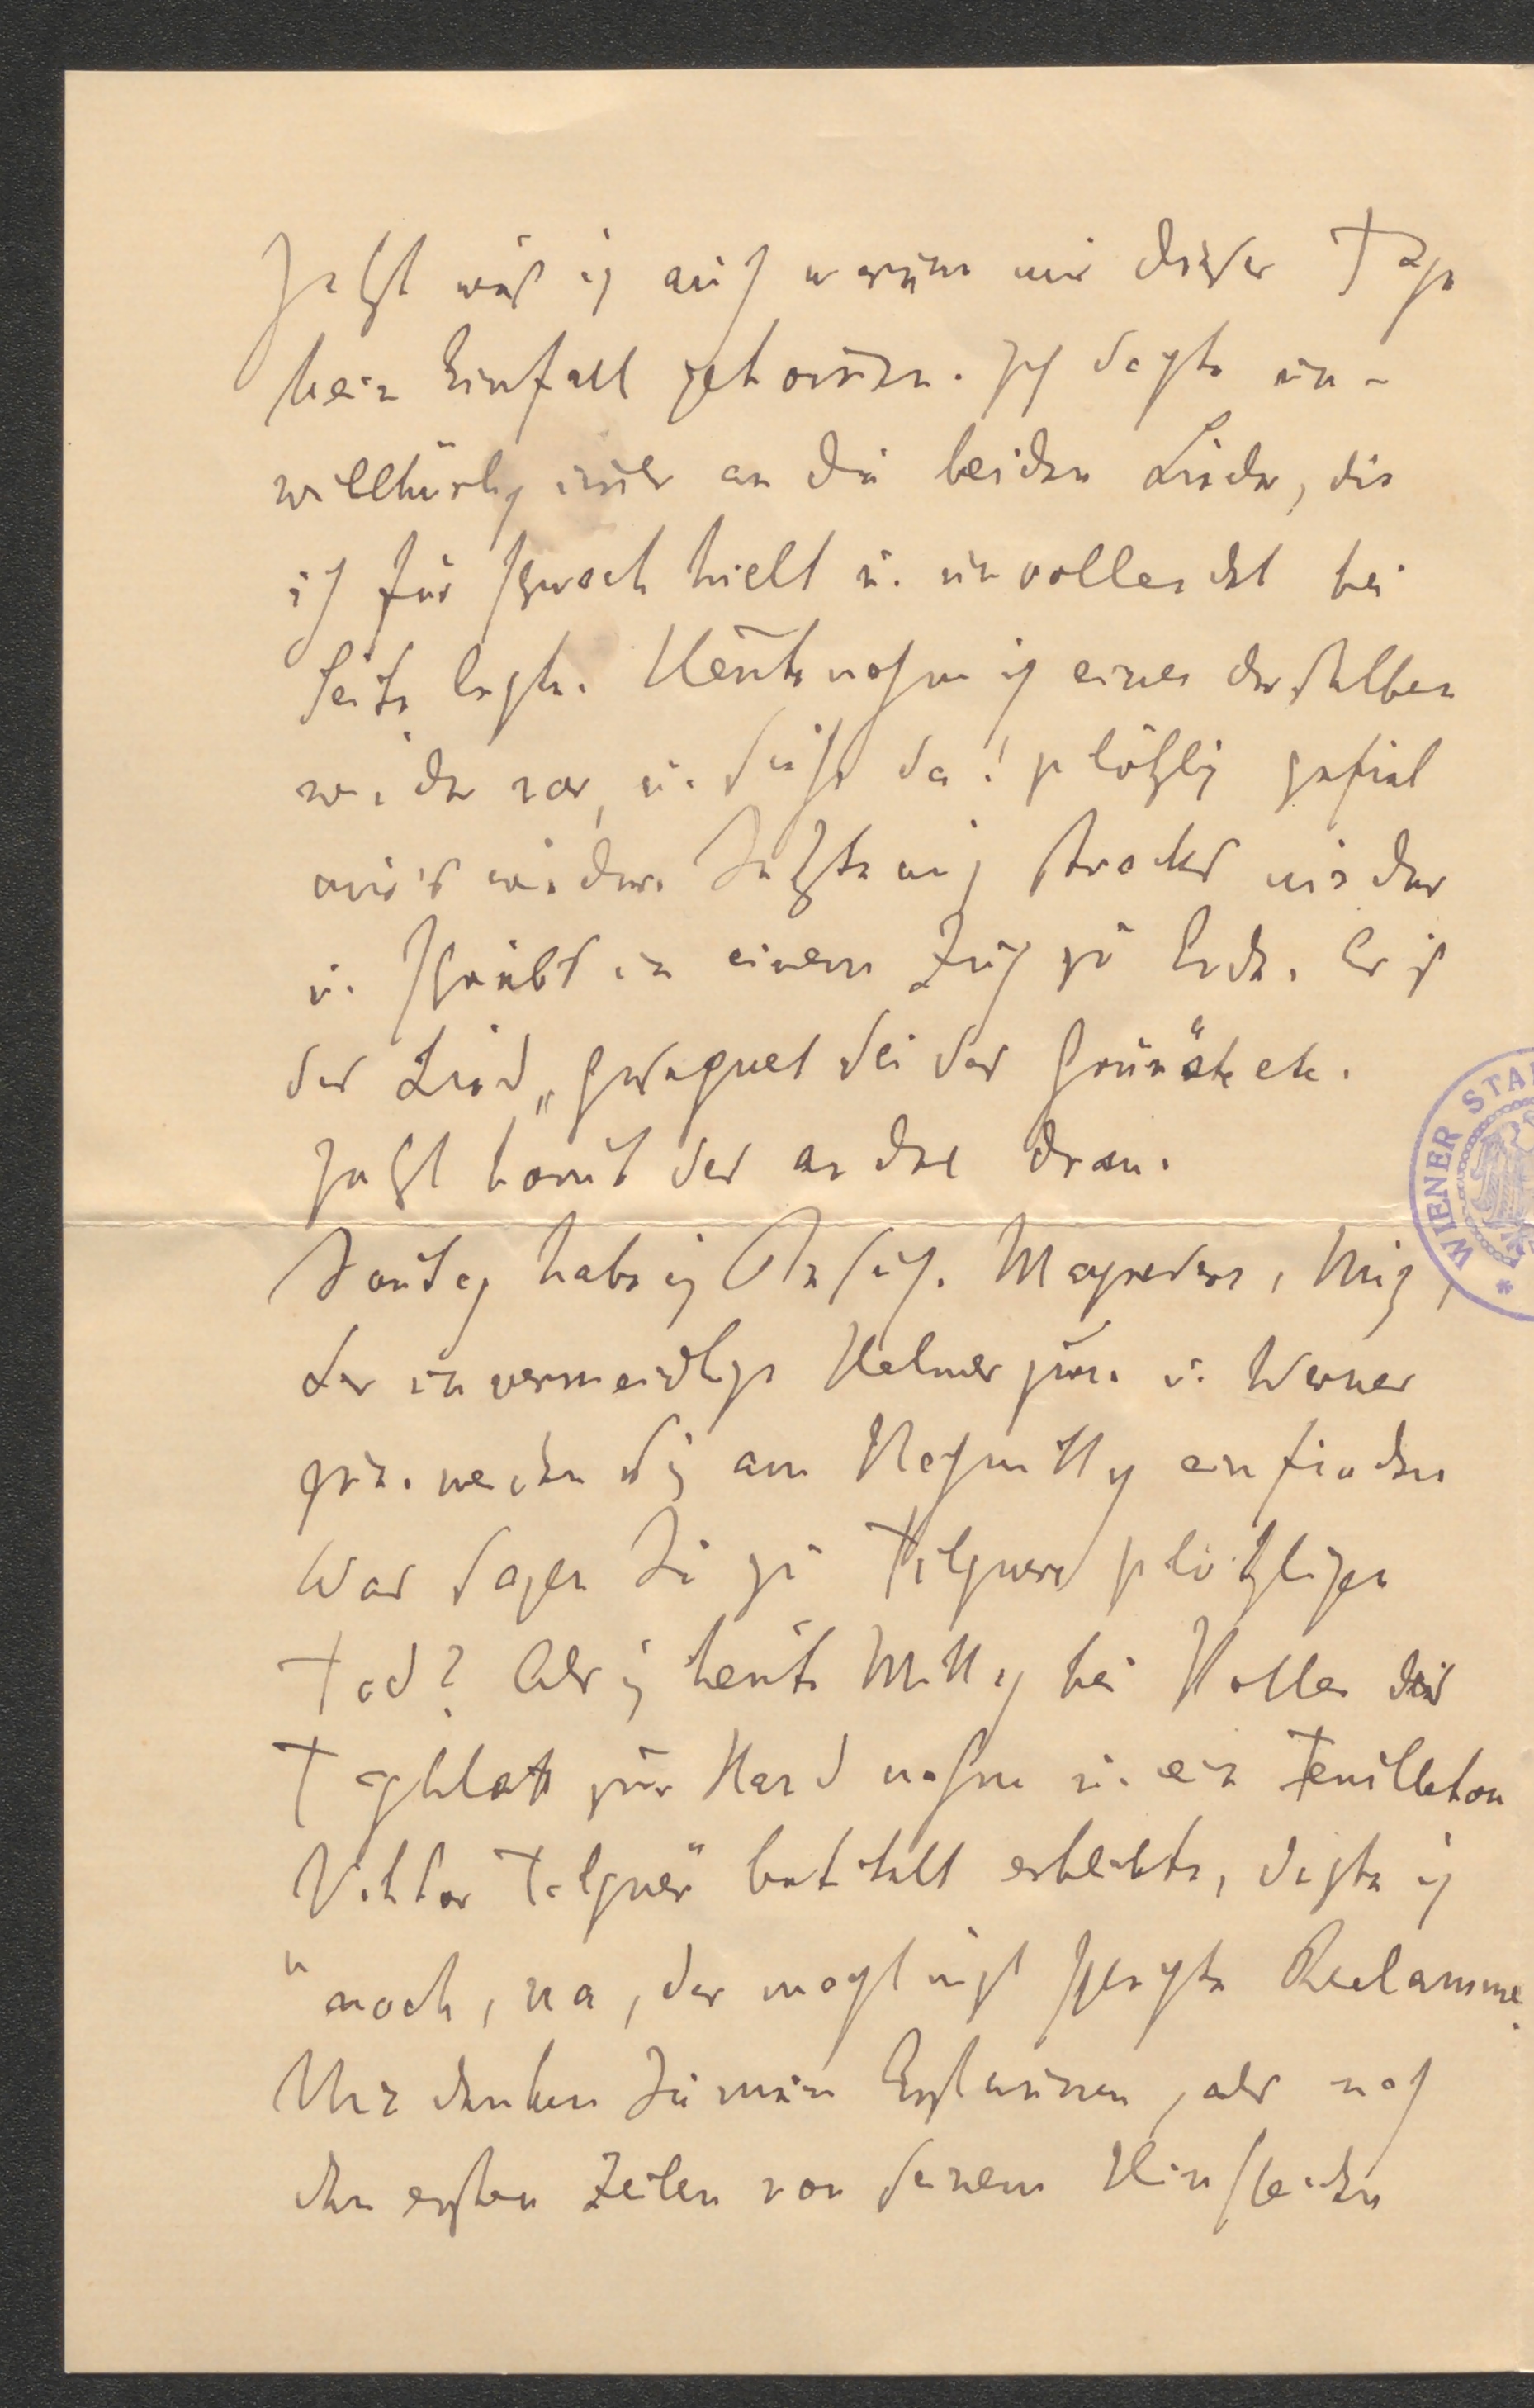 Jetzt weiß ich auch warum mir dieser Tage
kein Einfall gekommen. Ich dachte un-
willkürlich immer an die beiden Lieder, die
ich für schwach hielt u. unvollendet bei
Seite legte. Heute nahm ich eines derselben
wieder vor, u. siehe da! plötzlich gefiel
mir's wieder. Setzte mich stracks nieder
u. schrieb's in einem Zug zu Ende. Es ist
das Lied „Gesegnet sei das Grün" etc etc.
Jetzt komt das andre dran.
Sontag habe ich Besuch. Mayreders, Hirsch,
der unvermeidliche Helmer jun. u. Werner
gen. werden sich am Nachmittag einfinden
Was sagen Sie zu Tilgners plötzlichen
Tod? Als ich heute Mittag bei Holler das
Tagblatt zur Hand nahm u. ein Feuilleton
Viktor Tilgner" betitelt erblickte, dachte ich
noch, na, der macht nicht schlechte Reclamme.
Nun denken Sie mein Erstaunen, als nach
den ersten Zeilen von seinem Hinscheiden
WIENER STA